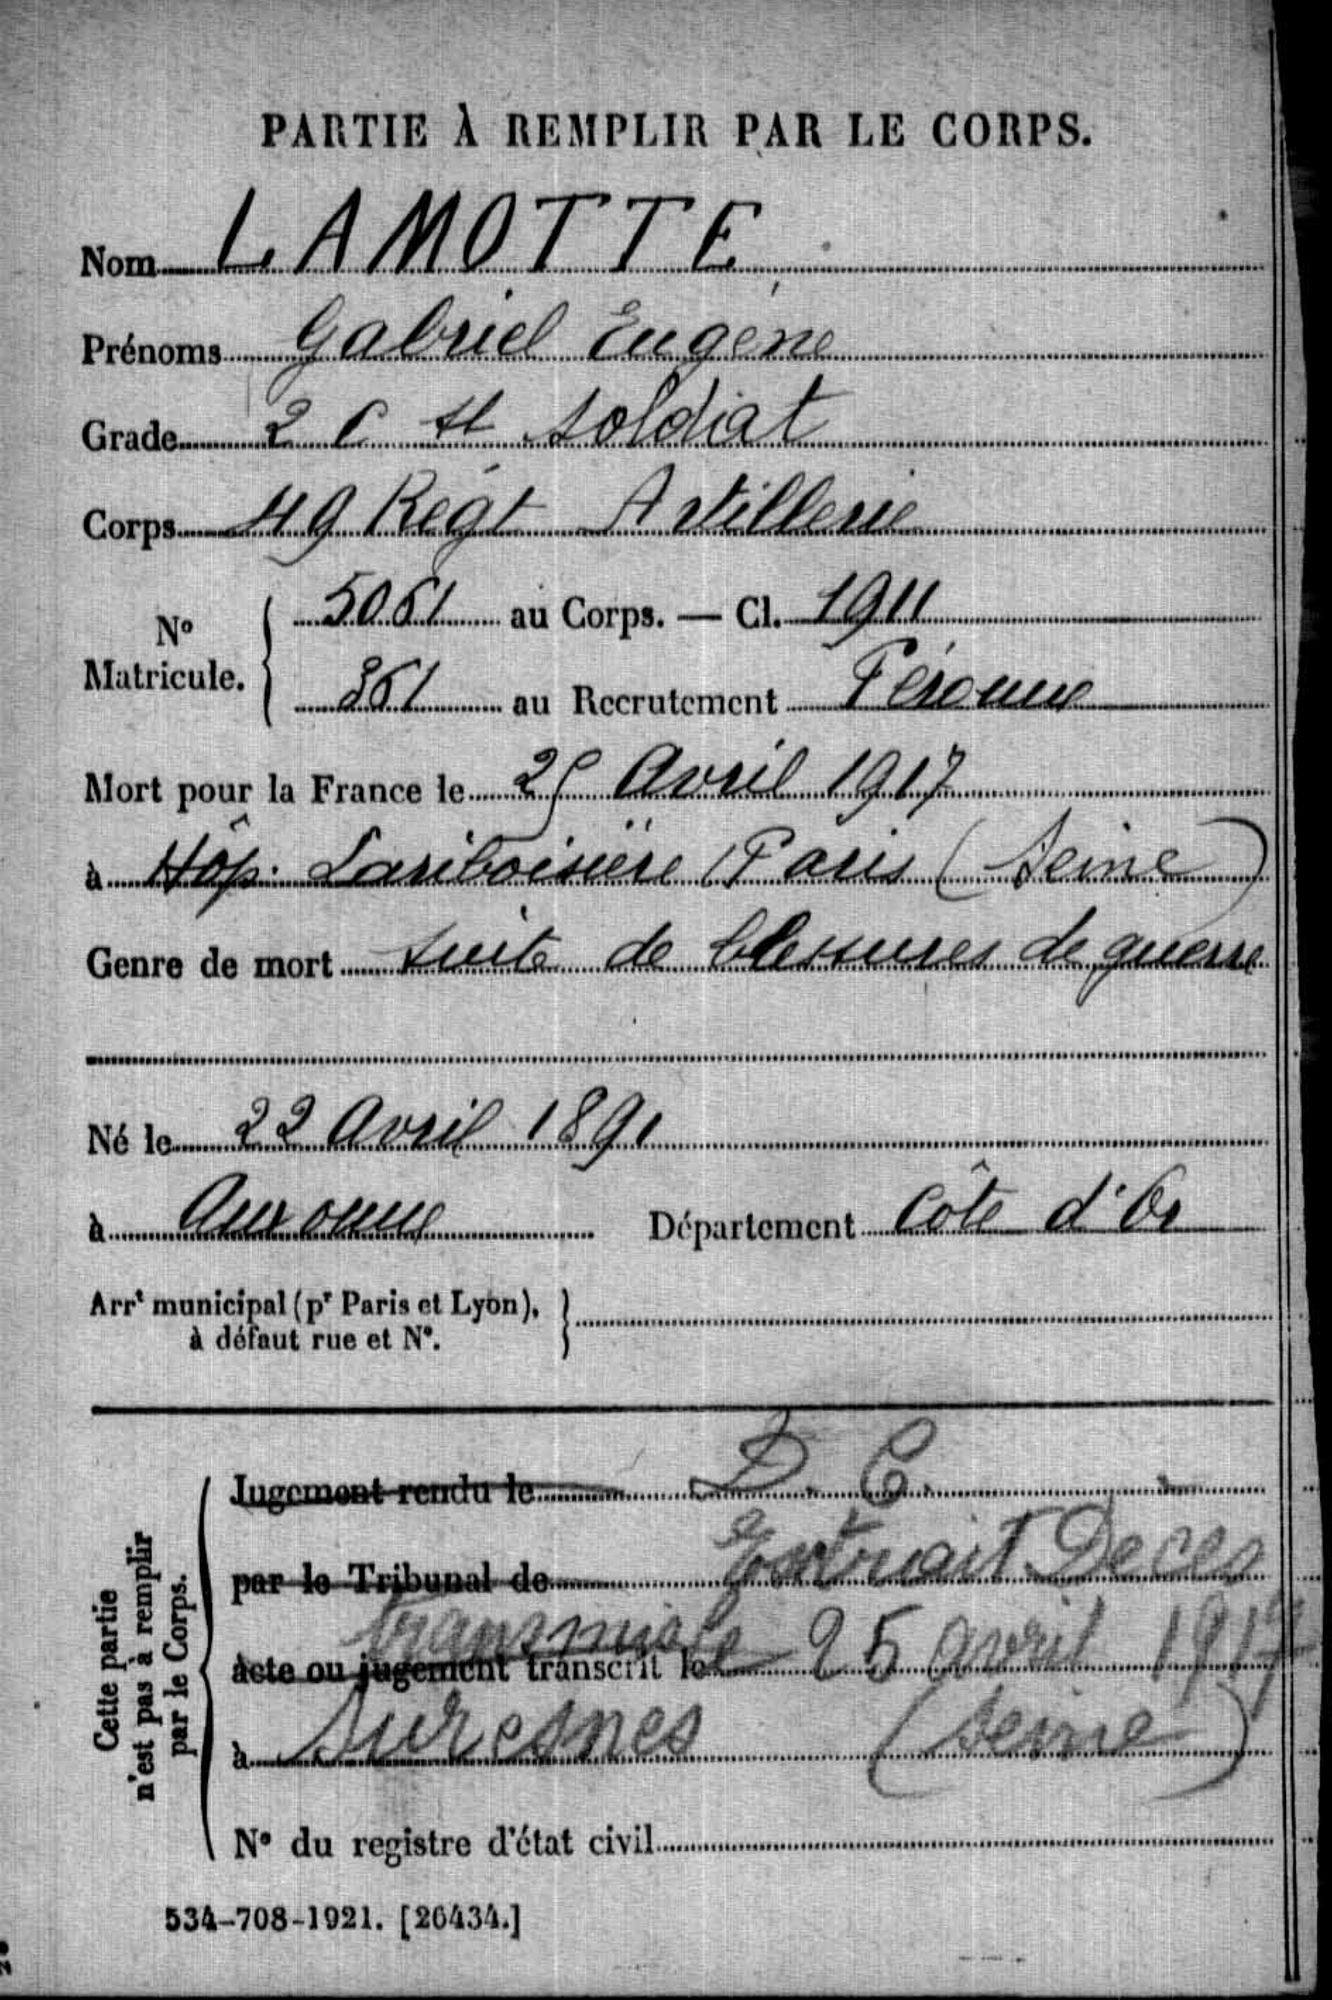 PARTIE À REMPLIR PAR LE CORPS.
Nom LAMOTTE
Prénoms Gabriel Eugène
Grade 2 C st soldat
Corps 49 Régt Artillerie
N° Matricule. { 5061 au Corps. — Cl. 1911
361 au Recrutement Péronne
Mort pour la France le 25 Avril 1917
à Hôp. Lariboisière (Paris (Seine)
Genre de mort suite de blessures de guerre
Né le 22 Avril 1891
à Auxonne Département Côte d'Or
Arrt municipal (pr Paris et Lyon), à défaut rue et N°.
Cette partie n'est pas à remplir par le Corps.
Jugement rendu le D. C.
par le Tribunal de Extrait Deces
transmis le 25 avril 1917
acte ou jugement transcrit le
à Suresnes (Seine)
N° du registre d'état civil
534-708-1921. [26434.]